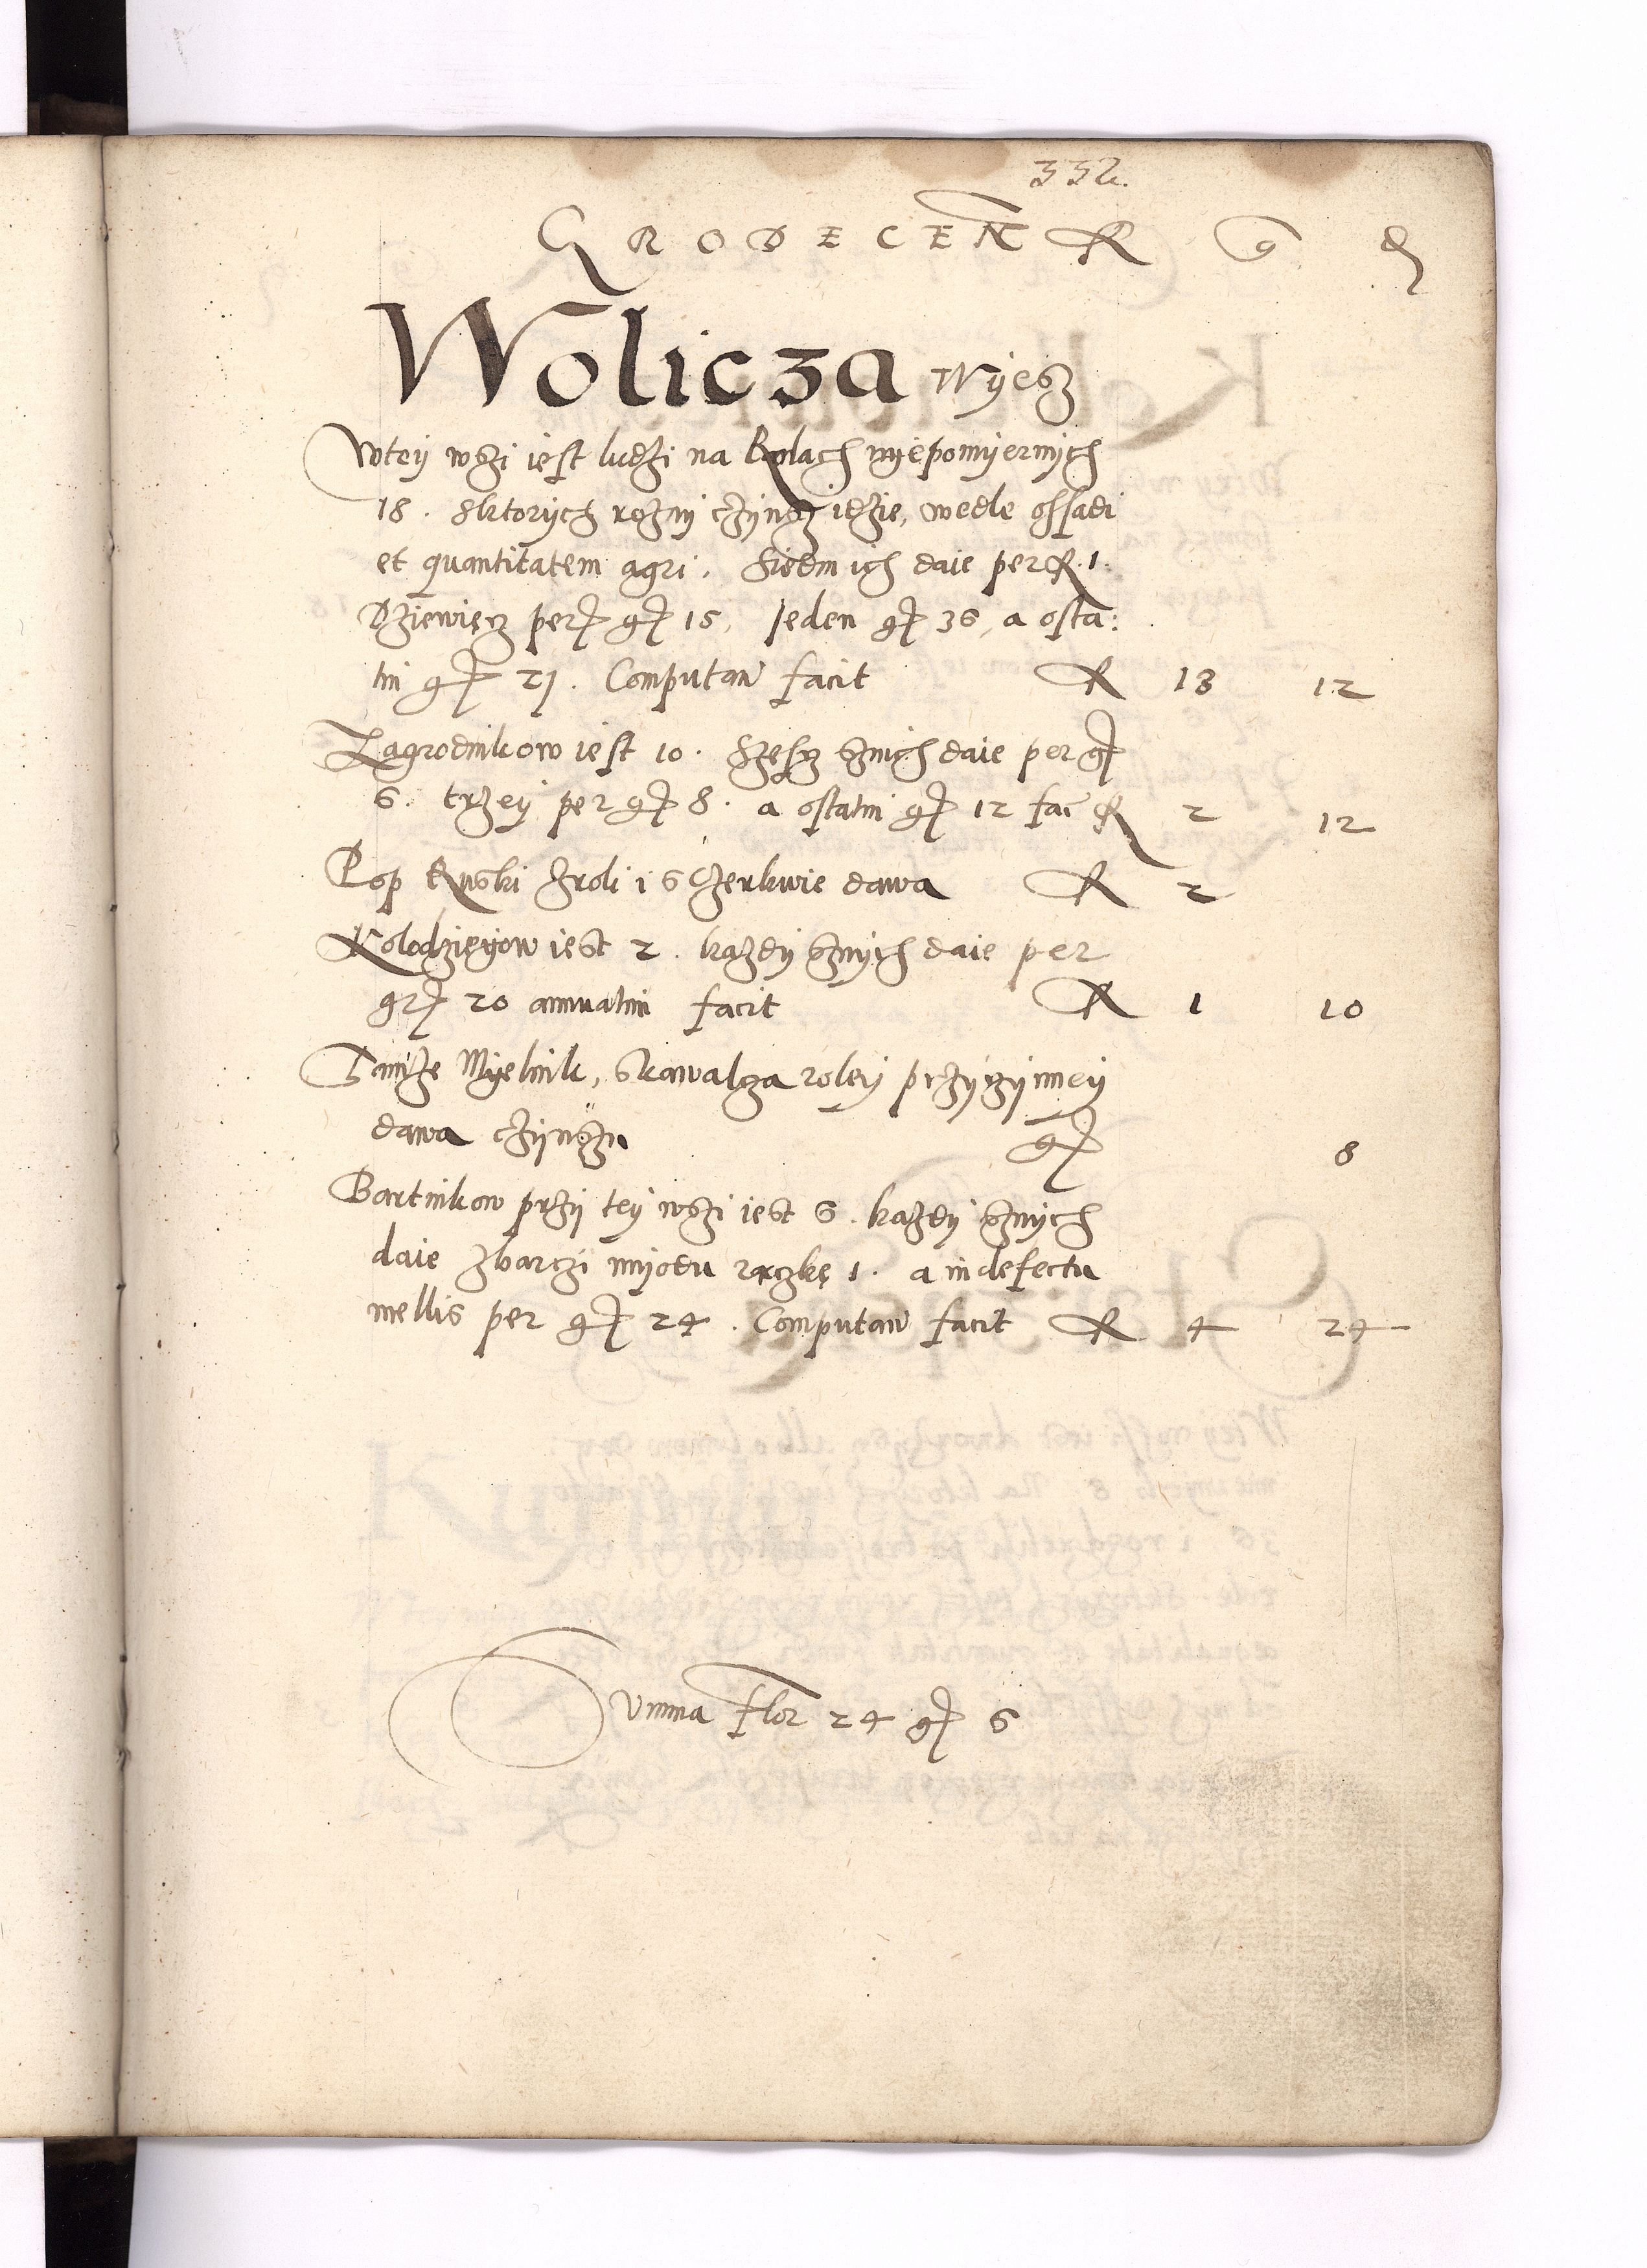 332.
GRODECEN R g d
Wolicza Wyesz
Wtey wszi iest ludzi na Rolach nyepomyernych
18. Sktorych rozny czynsz idzie, wedle ossadi
et quantitatem agri. Siedm ich daie per R. 1.
Dziewięcz per gr 15, Jeden gr 36, a osta:
tni gr 21. Computan facit R 13 12
Zagrodnikow iest 10. Szescz sznich daie per gr
6. trzey per gr 8. a ostatni gr 12 fac R 2 12
Pop Ruski zroli i s Czerkwie dawa R 2
Kolodzieyow iest 2. kazdy sznych daie per
gr 20 annuatim facit R 1 10
Tamze Myelnik, skawalcza roley przyczynney
dawa czynszu gr 8
Bartnikow przy tey wszi iest 6. kazdy sznych
daie zbarczi myodu raczkę 1. a in defectu
mellis per gr 24. Computan facit R 4 24
Summa Flor 24 gr 6